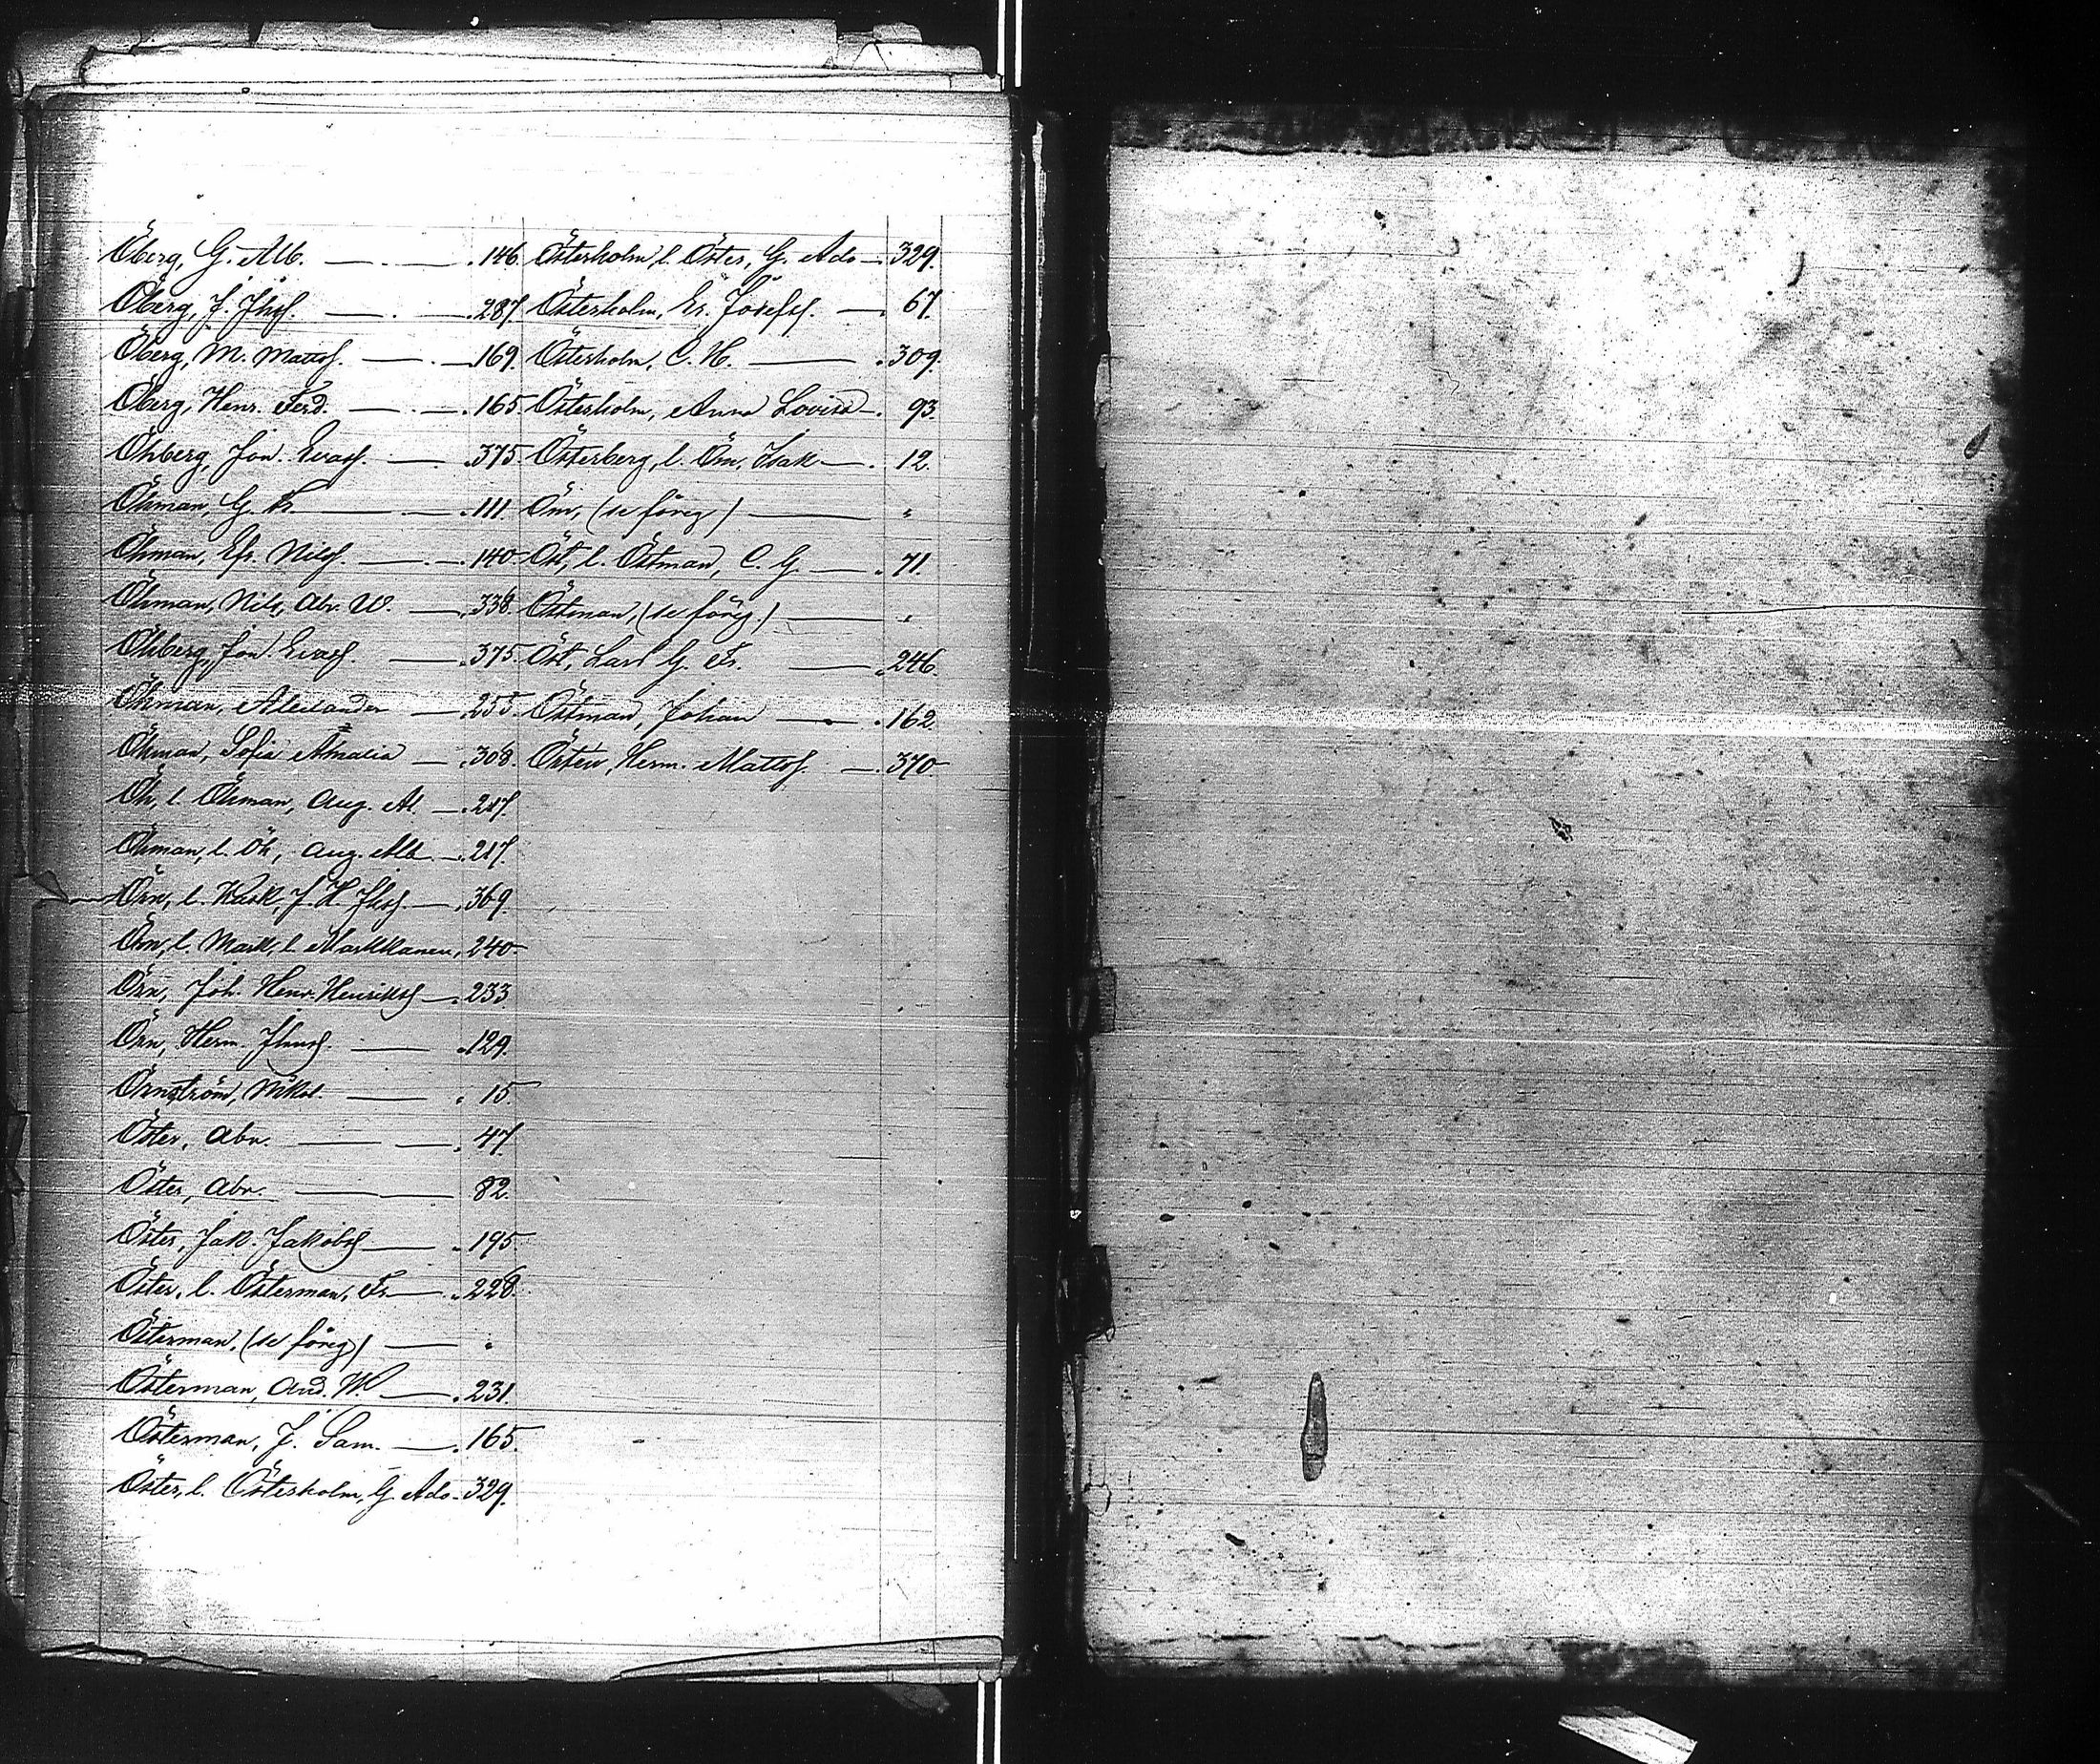 Öberg, G. Alb. 146.
Öberg, J. Jhsf. 287.
Öberg, M. Mattsf. 169.
Öberg, Henr. Ferd. 165.
Öhberg, Jon. Evasf. 375.
Öhman, G. Fr. 111.
Öhman, Efr. Nilsf. 140.
Öhman, Nils, Abr. W. 338.
Öhberg, Jon Evasf. 375.
Öhman, Alexander 255.
Öhman, Sofia Amalia 308.
Öh, l. Öhman, Aug. Al. 217.
Öhman, l. Öh, Aug. Alb. 217.
Örn, l. Rask, J. H. Jhsf. 369.
Örn, l. Mark, l. Markkanen, 240.
Örn, Joh. Henr. Henriksf. 233
Örn, Herm. Jhnsf. 129.
Örnström, Mikel. 15.
Öster, Abr. 47.
Öster, Abr. 82.
Öster, Jak. Jakobsf. 195.
Öster, l. Österman, Fr. 228.
Österman, (se föreg) "
Österman, And. W. 231.
Österman, J. Sam. 165.
Öster, l. Österholm, G. Ado. 329.
Österholm, l. Öster, G. Ado 329.
Österholm, Er. Josefsf. 67.
Österholm, C. H. 309.
Österholm, Anna Lovisa 93.
Österberg, l. Öm, Isak 12.
Öm, (se föreg) "
Öst, l. Östman, C. G. 71.
Östman, (se föreg.) "
Öst, Lars G. Fr. 246.
Östman, Johan 162.
Östen, Herm. Mattsf. 370.